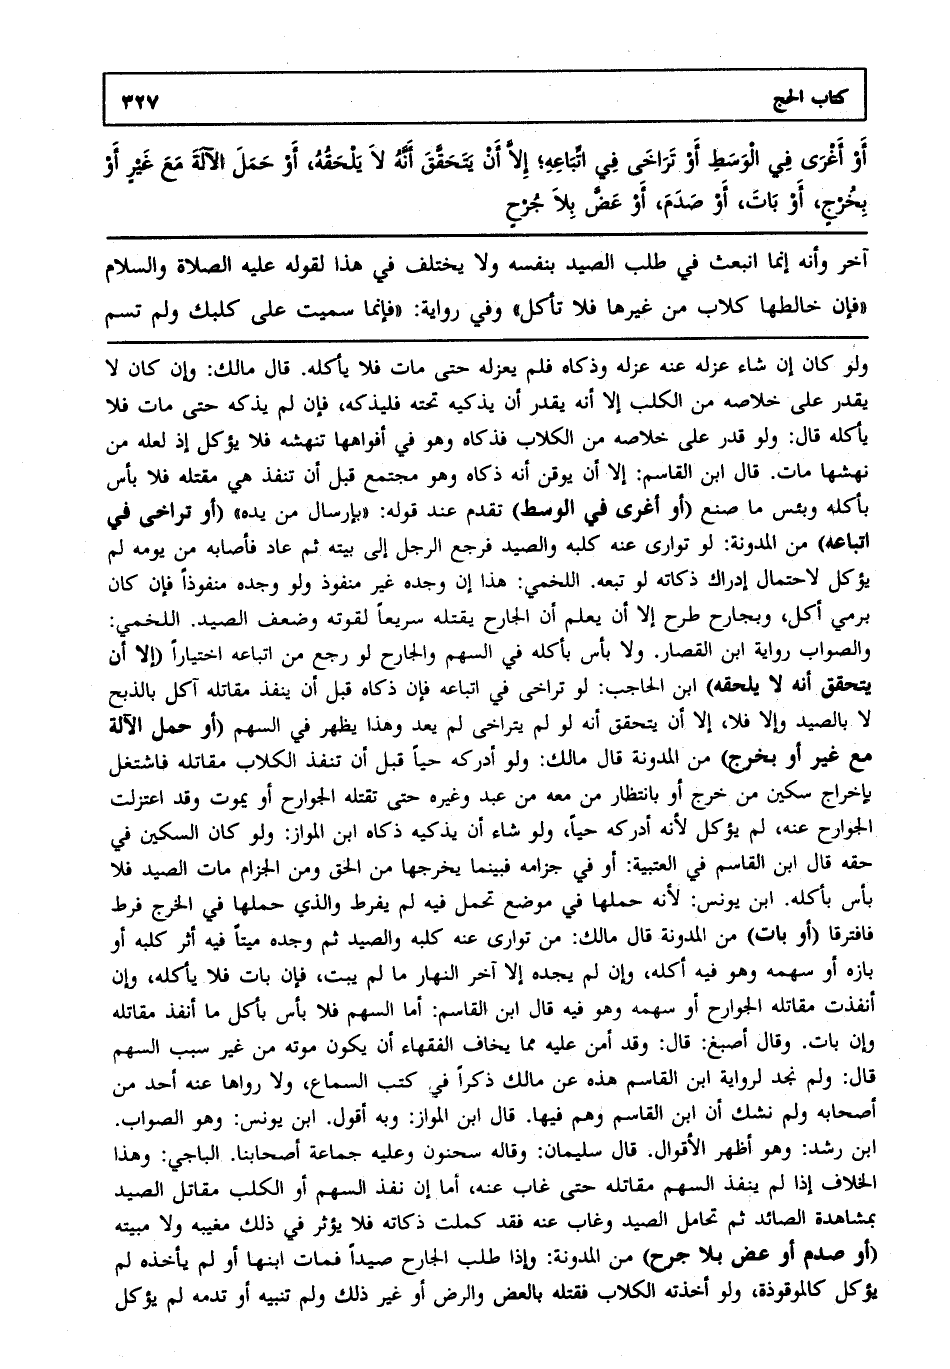 كتاب الحج ٣٢٧
أَوْ أَغْرَى فِي الْوَسَطِ أَوْ تَرَاخَى فِي اتِّبَاعِهِ؛ إِلاَّ أَنْ يَتَحَقَّقَ أَنَّهُ لاَ يَلْحَقُهُ، أَوْ حَمَلَ الآلَةَ مَعَ غَيْرٍ أَوْ
بِخُرْجٍ، أَوْ بَاتَ، أَوْ صَدَمَ، أَوْ عَضَّ بِلاَ جُرْحٍ
آخر وأنه إنما انبعث في طلب الصيد بنفسه ولا يختلف في هذا لقوله عليه الصلاة والسلام
«فإن خالطها كلاب من غيرها فلا تأكل» وفي رواية: «فإنما سميت على كلبك ولم تسم
ولو كان إن شاء عزله عنه عزله وذكاه فلم يعزله حتى مات فلا يأكله. قال مالك: وإن كان لا
يقدر على خلاصه من الكلب إلا أنه يقدر أن يذكيه تحته فليذكه، فإن لم يذكه حتى مات فلا
يأكله قال: ولو قدر على خلاصه من الكلاب فذكاه وهو في أفواهها تنهشه فلا يؤكل إذ لعله من
نهشها مات. قال ابن القاسم: إلا أن يوقن أنه ذكاه وهو مجتمع قبل أن تنفذ هي مقتله فلا بأس
بأكله وبئس ما صنع (أو أغرى في الوسط) تقدم عند قوله: «بإرسال من يده» (أو تراخى في
اتباعه) من المدونة: لو توارى عنه كلبه والصيد فرجع الرجل إلى بيته ثم عاد فأصابه من يومه لم
يؤكل لاحتمال إدراك ذكاته لو تبعه. اللخمي: هذا إن وجده غير منفوذ ولو وجده منفوذاً فإن كان
برمي أكل، وبجارح طرح إلا أن يعلم أن الجارح يقتله سريعاً لقوته وضعف الصيد. اللخمي:
والصواب رواية ابن القصار. ولا بأس بأكله في السهم والجارح لو رجع من اتباعه اختياراً (إلا أن
يتحقق أنه لا يلحقه) ابن الحاجب: لو تراخى في اتباعه فإن ذكاه قبل أن ينفذ مقاتله آكل بالذبح
لا بالصيد وإلا فلا، إلا أن يتحقق أنه لو لم يتراخى لم يعد وهذا يظهر في السهم (أو حمل الآلة
مع غير أو بخرج) من المدونة قال مالك: ولو أدركه حياً قبل أن تنفذ الكلاب مقاتله فاشتغل
بإخراج سكين من خرج أو بانتظار من معه من عبد وغيره حتى تقتله الجوارح أو يموت وقد اعتزلت
الجوارح عنه، لم يؤكل لأنه أدركه حياً، ولو شاء أن يذكيه ذكاه ابن المواز: ولو كان السكين في
حقه قال ابن القاسم في العتبية: أو في جزامه فبينما يخرجها من الحق ومن الجزام مات الصيد فلا
بأس بأكله. ابن يونس: لأنه حملها في موضع تحمل فيه لم يفرط والذي حملها في الخرج فرط
فافترقا (أو بات) من المدونة قال مالك: من توارى عنه كلبه والصيد ثم وجده ميتاً فيه أثر كلبه أو
بازه أو سهمه وهو فيه أكله، وإن لم يجده إلا آخر النهار ما لم يبت، فإن بات فلا يأكله، وإن
أنفذت مقاتله الجوارح أو سهمه وهو فيه قال ابن القاسم: أما السهم فلا بأس بأكل ما أنفذ مقاتله
وإن بات. وقال أصبغ: قال: وقد أمن عليه مما يخاف الفقهاء أن يكون موته من غير سبب السهم
قال: ولم نجد لرواية ابن القاسم هذه عن مالك ذكراً في كتب السماع، ولا رواها عنه أحد من
أصحابه ولم نشك أن ابن القاسم وهم فيها. قال ابن المواز: وبه أقول. ابن يونس: وهو الصواب.
ابن رشد: وهو أظهر الأقوال. قال سليمان: وقاله سحنون وعليه جماعة أصحابنا. الباجي: وهذا
الخلاف إذا لم ينفذ السهم مقاتله حتى غاب عنه، أما إن نفذ السهم أو الكلب مقاتل الصيد
بمشاهدة الصائد ثم تحامل الصيد وغاب عنه فقد كملت ذكاته فلا يؤثر في ذلك مغيبه ولا مبيته
(أو صدم أو عض بلا جرح) من المدونة: وإذا طلب الجارح صيداً فمات ابنها أو لم يأخذه لم
يؤكل كالموقوذة، ولو أخذته الكلاب فقتله بالعض والرض أو غير ذلك ولم تنبيه أو تدمه لم يؤكل